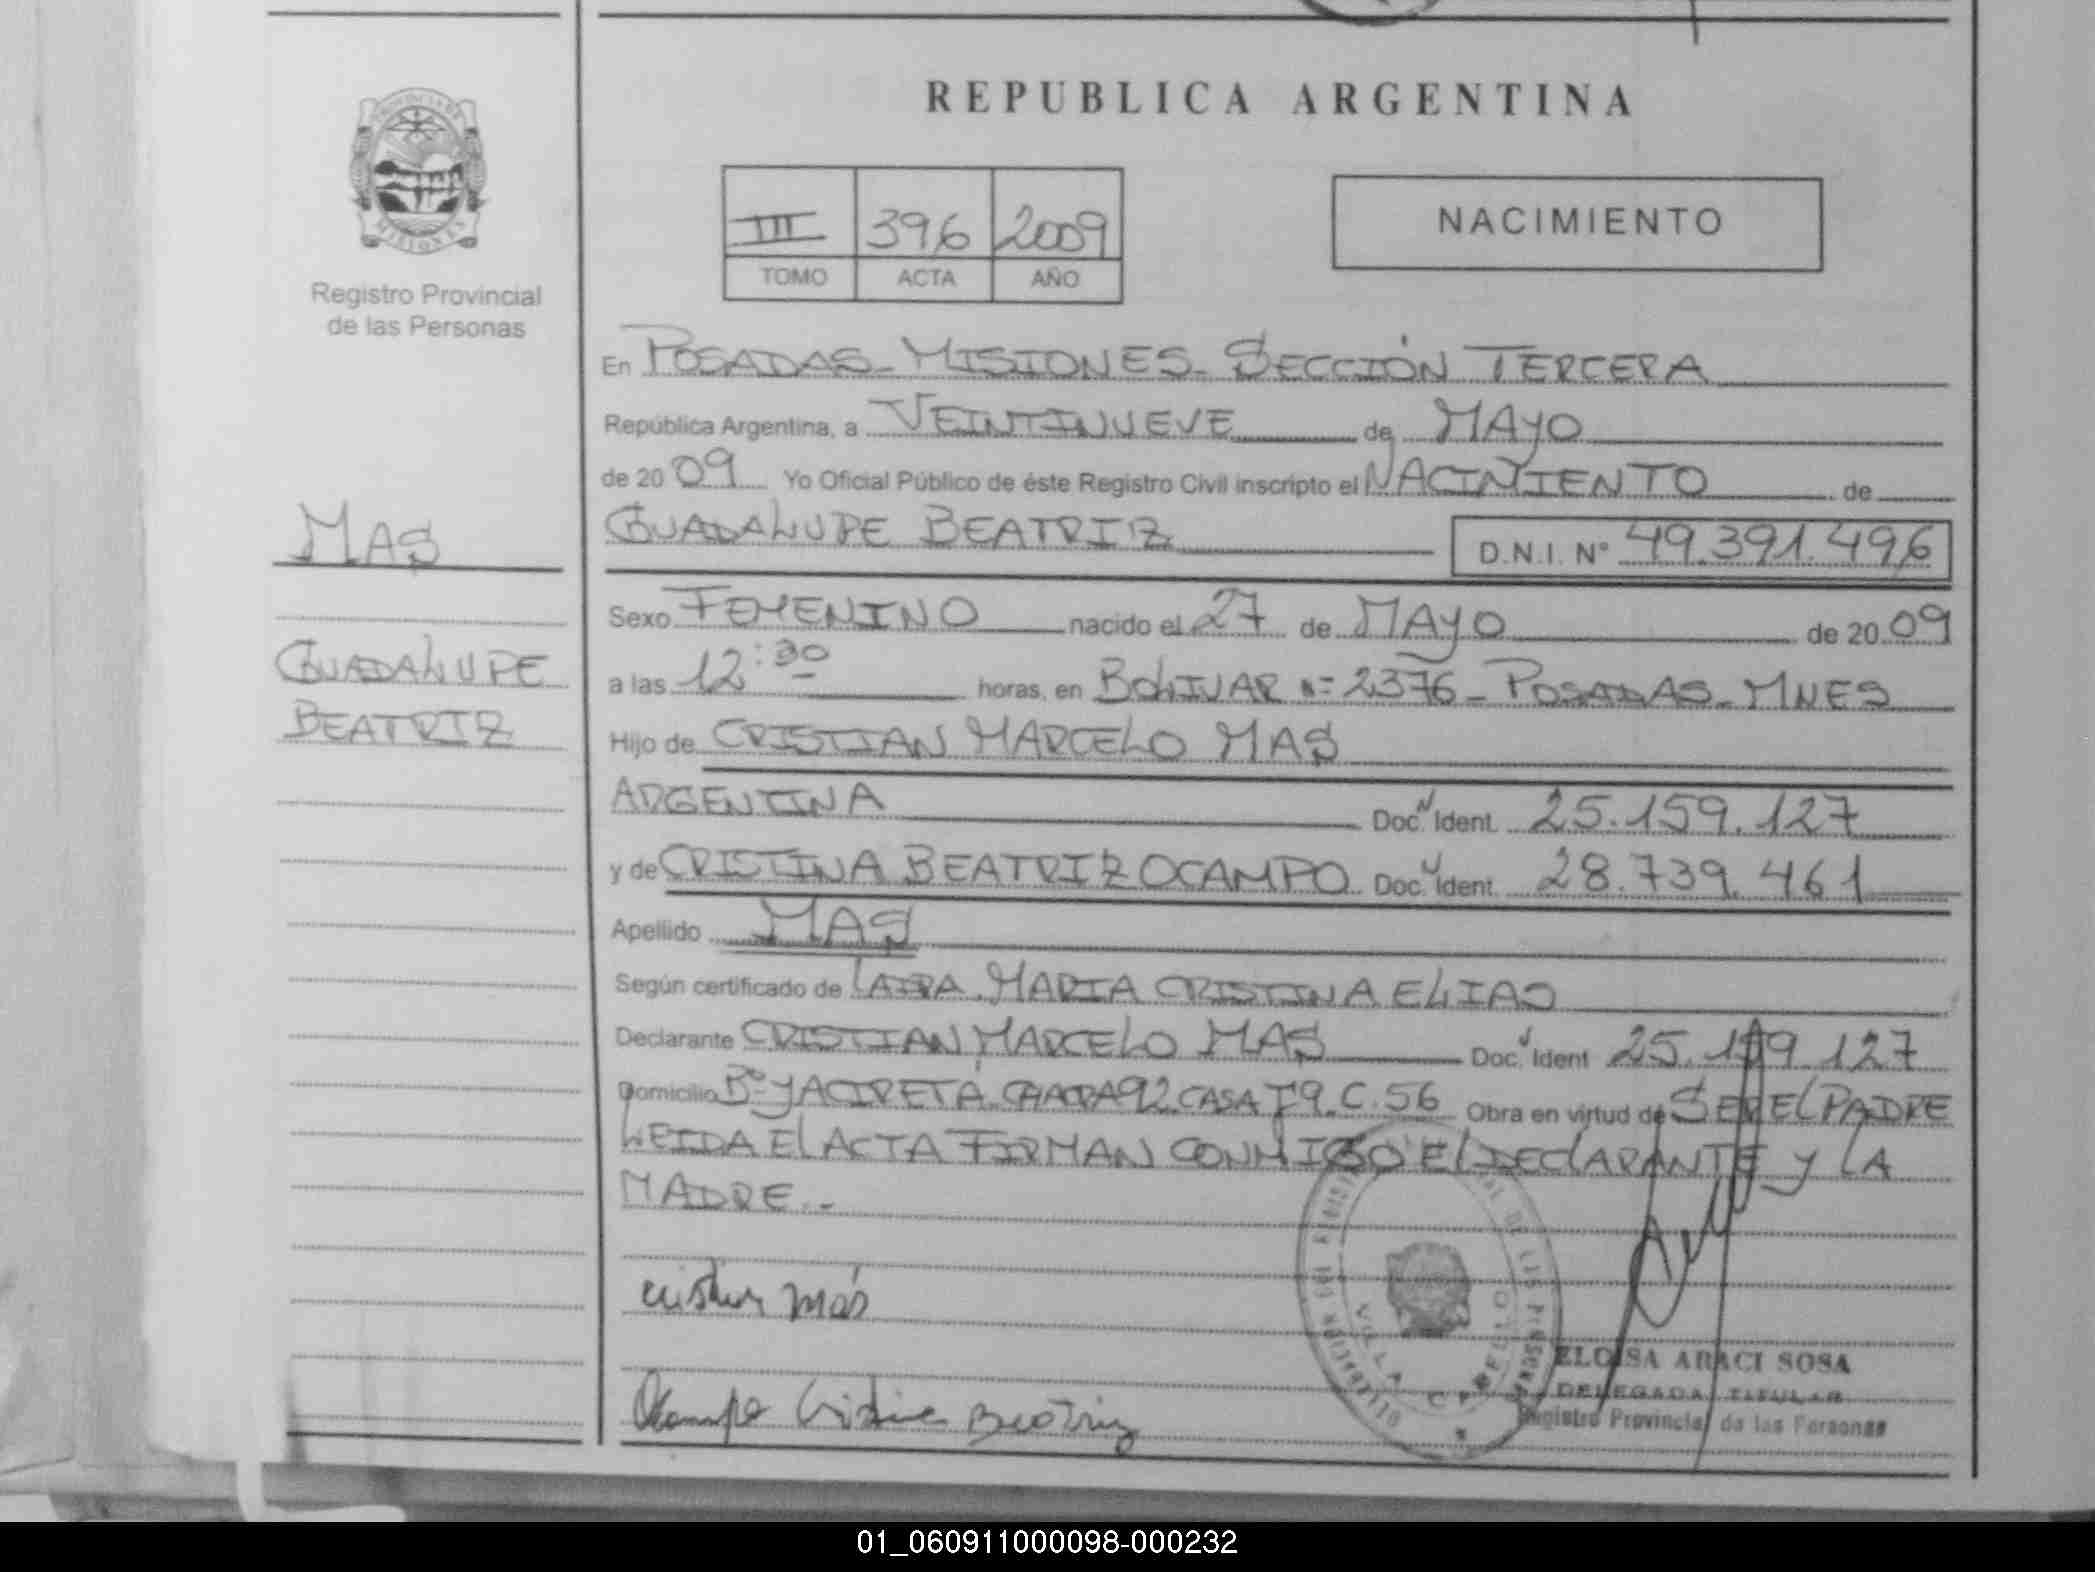 REPUBLICA ARGENTINA
PROVINCIA DE
MISIONES
Registro Provincial
de las Personas
III 396 2009
TOMO ACTA AÑO
NACIMIENTO
En POSADAS - MISIONES - SECCIÓN TERCERA
República Argentina, a VEINTINUEVE de MAYO
de 2009 Yo Oficial Público de éste Registro Civil inscripto el NACIMIENTO de
MAS
GUADALUPE BEATRIZ D.N.I. Nº 49.391.496
Sexo FEMENINO nacido el 27 de MAYO de 2009
GUADALUPE
BEATRIZ
a las 12:30 horas, en BOLIVAR Nº 2376 - POSADAS - MNES
Hijo de CRISTIAN MARCELO MAS
ARGENTINA Doc. Ident. 25.159.127
y de CRISTINA BEATRIZ OCAMPO Doc. Ident. 28.739.461
Apellido MAS
Según certificado de MARIA CRISTINA ELIAS
Declarante CRISTIAN MARCELO MAS Doc. Ident 25.159.127
Domicilio Bº YACIRETA CHACRA 92 CASA 9 C. 56 Obra en virtud de SER EL PADRE
LEIDA El ACTA FIRMAN CONMIGO El DEClARANTE y LA
MADRE.-
cristian más
Ocampo Cristina Beatriz
VILLA CABELLO
ELOISA ARACI SOSA
DELEGADA TITULAR
Registro Provincial de las Personas
01_060911000098-000232